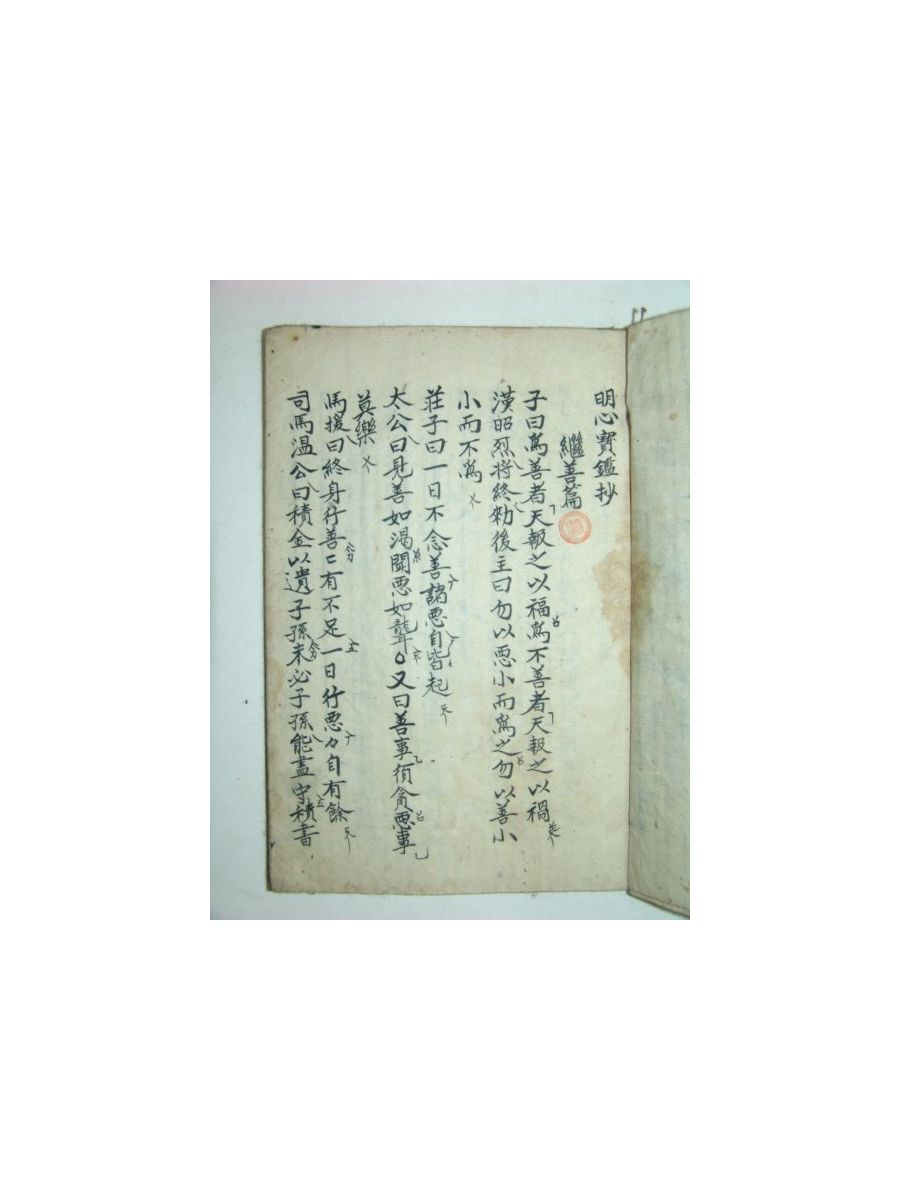 明心寶鑑抄
繼善篇
子曰爲善者天報之以福爲不善者天報之以禍
漢昭烈將終勅後主曰勿以惡小而爲之勿以善小
小而不爲
莊子曰一日不念善諸惡自皆起
太公曰見善如渴聞惡如聾○又曰善事須貪惡事
莫樂
馬援曰終身行善〻有不足一日行惡々自有餘
司馬溫公曰積金以遺子孫未必子孫能盡守積書